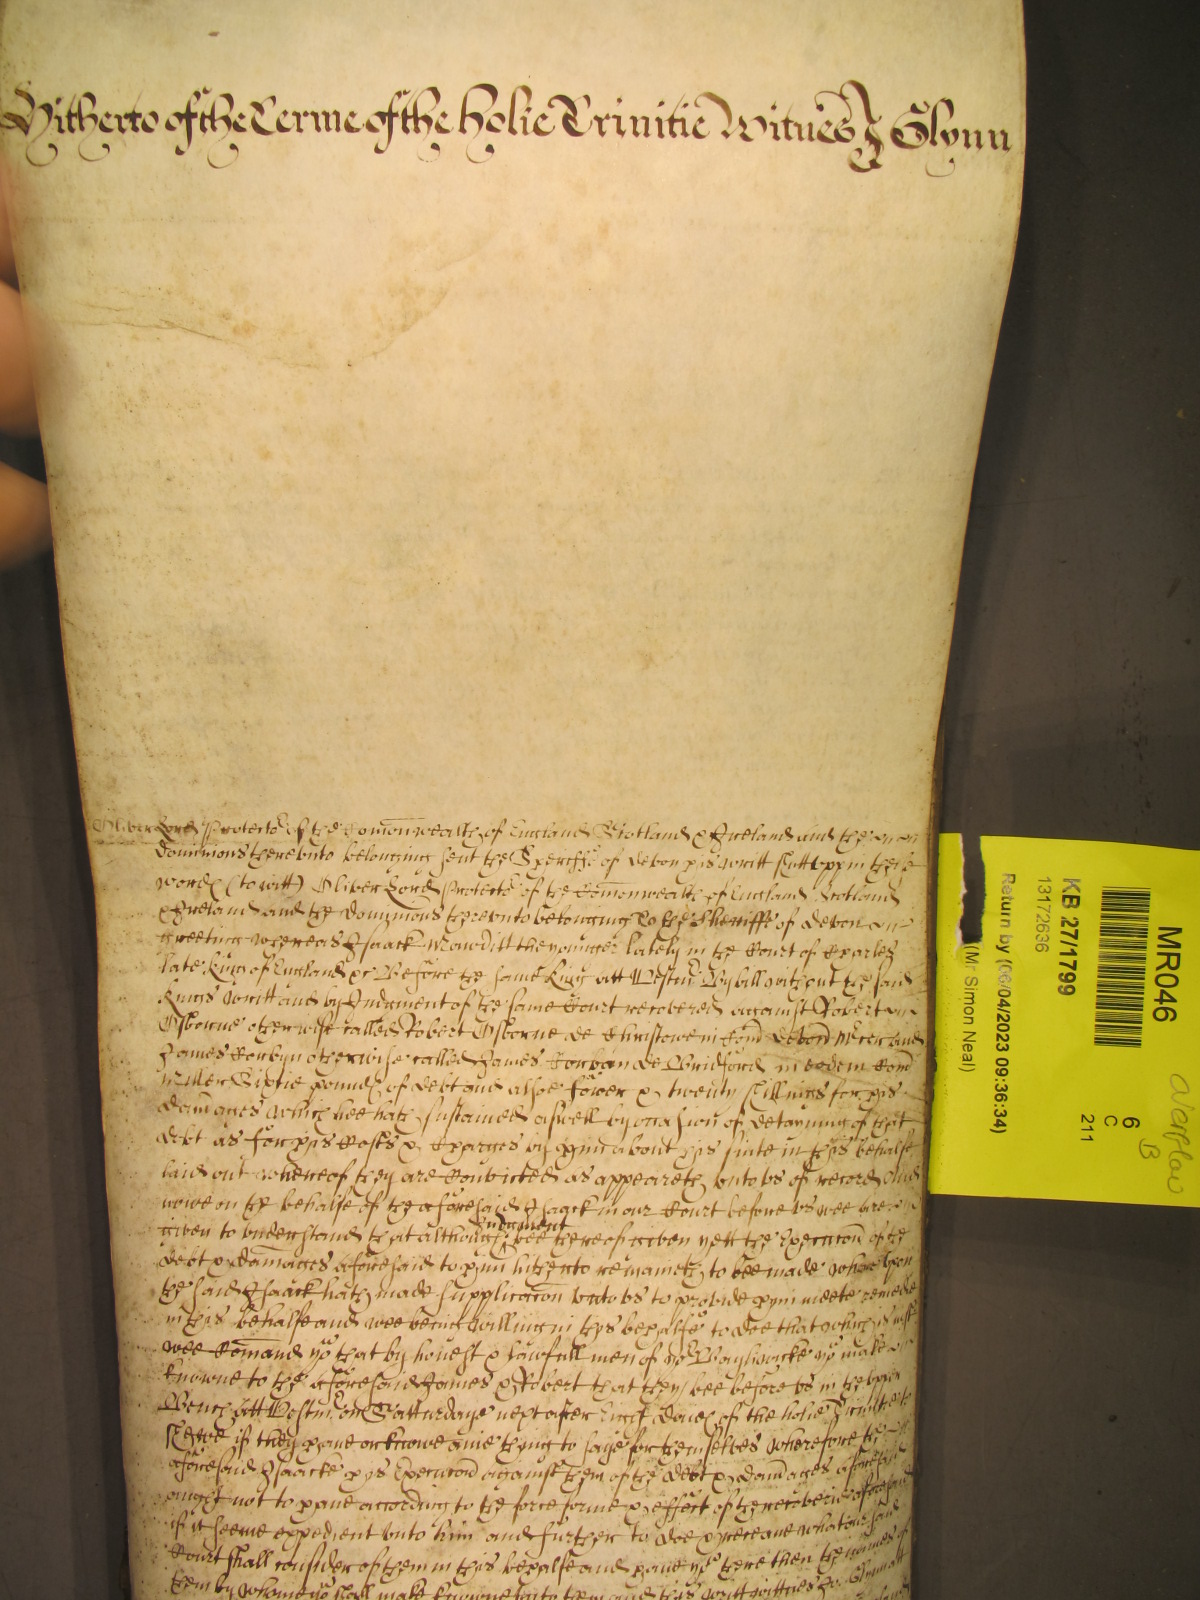 Hitherto of the Terme of the holie Trinitie Witnes J Glynn
Oliver Lord Protector of the Comonwealth of England Scotland & Ireland and the
dominions thereunto belonging sent the Sheriffe of devon his writt shutt upp in these
words (to witt) Oliver Lord Protector of the Comonwealth of England Scotland
& Ireland and the dominions thereunto belonging To the Sheriffe of devon
greeting whereas Isaack Mawditt the younger lately in the Court of Charles
late King of England &c Before the same King att Westmr By bill without the said
Kings writt and by Judgment of the same Court recovered against Robert
Osborne otherwise called Robert Osborne de Christowe in Com devon and
James Corbyn otherwise called James Corban de Bridford in eodem Com
Miller Sixtie pounds of debt and alsoe fower & twenty shillings for his
damages which hee hath sustained aswell by occasion of detayning of that
debt as for his Costs & Charges by him about his suite in this behalfe
laid out whereof they are Convicted as appeareth unto us of record And
nowe on the behalfe of the aforesaid Isaack in our Court before us wee are
given to understand that although Judgment bee thereof given yett the Execucon of the
debt & damages aforesaid to him hitherto remaineth to bee made whereupon
the said Isaack hath made supplicacon unto us to provide him meete remedie
in this behalfe and wee being willing in this behalfe to doe that which is just
wee Comand you that by honest & lawfull men of yor Bayliwicke you make
knowne to the aforesaid James & Robert that they bee before us in the upper
Bench att Westmr on Satturdaye next after dayes of the holie Trinitie to
shewe if they have or knowe anie thing to saye for themselves wherefore the
aforesaid Isaacke his Execucon against them of the debt & damages aforesaid
ought not to have according to the force forme & effect of the recoverie aforesaid
if it seeme expedient unto him and further to doe & receave whatour said
Court shall consider of them in this behalfe and have you there then the names of
them by whome you shall make knowne unto them and this writt wittnes
MR046
6
C
211
KB 27/1799
13172636
Return by (06/04/2023 09:36:34)
(Mr Simon Neal)
Overflow
B